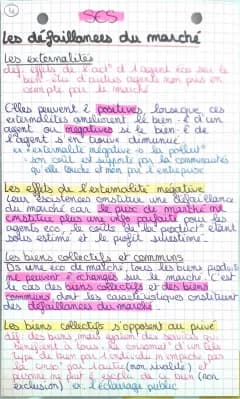 4
SES
Les défaillances du marché
Les externalités
déf: effets de l'act° d'1 agent éco sur le
bien-être d'autres agents non pris en
compte par le marché
Elles peuvent ê positives, lorsque ces
externalités améliorent le bien-ê d'un
agent ou négatives si le bien-ê de
l'agent s'en trouve diminué.
ex: externalité négative → les pollut°
→ son coût est supporté par la communauté
qu'elle touche et non par l'entreprise
Les effets de l'externalité négative
Leur existence constitue une défaillance
du marché car le prix de marché ne
constitue plus une info parfaite pour les
agents éco, le coûts de la product° étant
sous estimé et le profit surestimé.
Les biens collectifs et communs
Ds une éco de marché, tous les biens produits
ne peuvent ê échangés sur le marché. C'est
le cas des biens collectifs et des biens
communs dont les caractéristiques constituent
des défaillances du marché.
Les biens collectifs s'opposent au privé
déf: des biens, mais aussi des services qui
bénéficient à tous. La consomat° d'un tel
type de bien par 1 individu n'empêche pas
la conso° par l'autre (non rivalité) et
personne ne peut ê exclu de ce bien (non
exclusion) ex: l'éclairage public